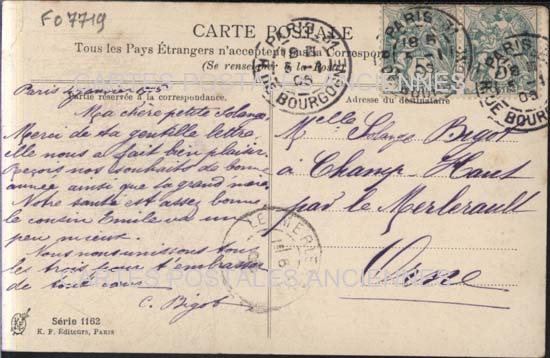 FO 7719
CARTE POSTALE
Tous les Pays Étrangers n'acceptent pas la Correspon
(Se renseigner à la Poste)
Partie réservée à la correspondance.
Adresse du destinataire
CARTES POSTALES ANCIENNES
Paris 4 janvier
Ma chère petite Solange
Merci de ta gentille lettre,
elle nous a fait bien plaisir.
Reçois nos souhaits de bonne
année ainsi que ta grand mère
Notre santé est assez bonne
le cousin Emile va un
peu mieux.
Nous nous unissons tous
les trois pour t'embrasser
de tout cœur
C. Bigot
Melle Solange Bigot
à Champ-Haut
par le Merlerault
Orne
PARIS
18
5
05
R. DE BOURGOGNE
PARIS
18
R. DE BOURGOGNE
LE MERLE
CARTES POSTALES ANCIENNES
Série 1162
K. F. Editeurs, PARIS